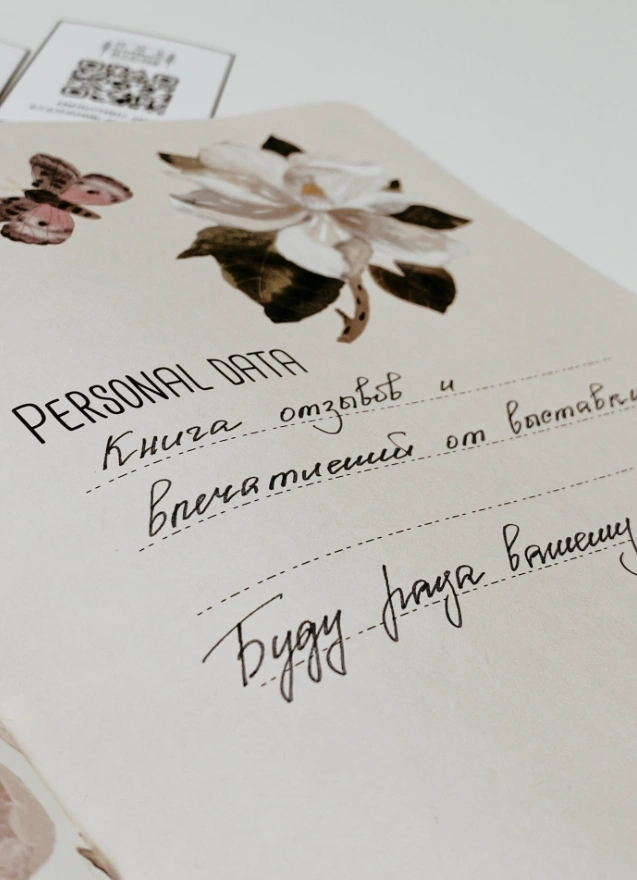 PERSONAL DATA
Книга отзывов и
впечатлений от выставки
Буду рада вашему